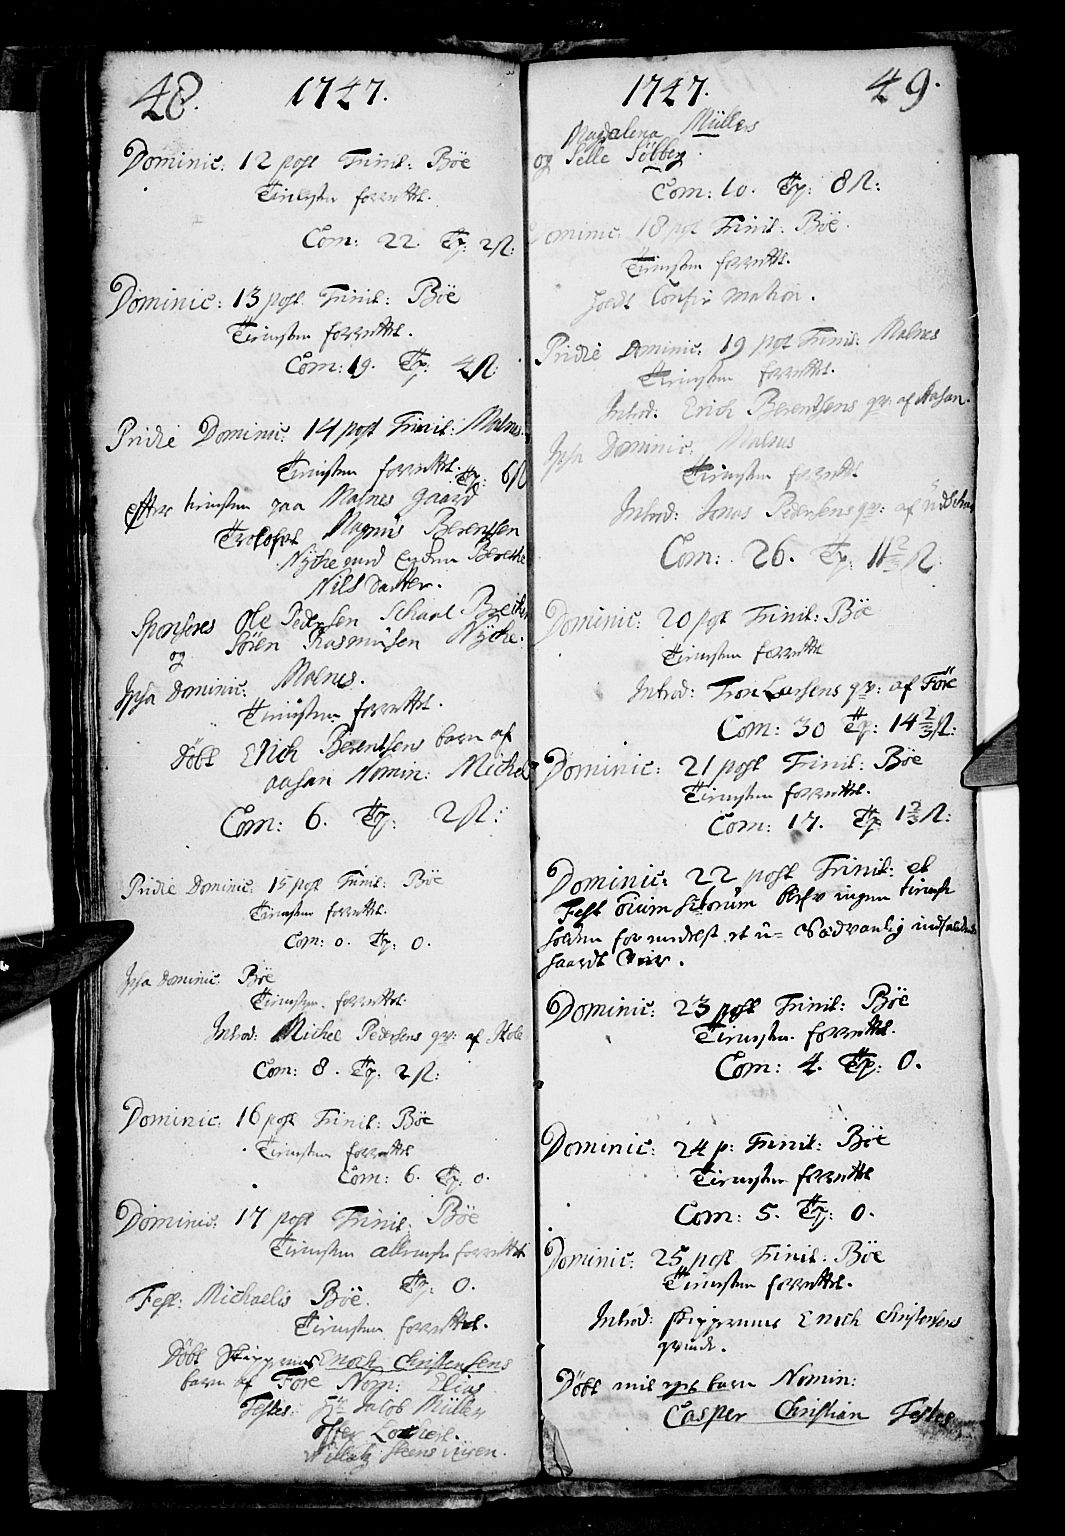 48. 1747.
Dominic: 12 post Trinit: Bøe
Tienesten forrettet.
Com: 22. Tp: 2
Dominic: 13 post Trinit: Bøe
Tienesten forrettet.
Com: 19. Tp: 4
Pridie Dominic: 14 post Trinit: Malnes.
Tienesten forrettet. Tp: 6
efter tienesten paa Malnes gaard
Trolofvet Magnus Berentsen
Nÿcke med Berethe
Nils Datter.
Sponseres Ole Pedersen
og Sören Rasmüsen Nÿcke.
Ipsa Dominic: Malnes.
Tienesten forrettet.
Döbt Erich Berentsens barn af
aasan Nomin: Michel
Com: 6. Tp: 2
Pridie Dominic: 15 post Trinit: Bøe
Tienesten forrettet.
Com: 0. Tp: 0.
Ipsa Dominic: Bøe
Tienesten forrettet
Introd: Michel Pedersens qv: af
Com: 8. Tp: 2
Dominic: 16 post Trinit: Bøe
Tienesten forrettet
Com: 6. Tp: 0.
Dominic: 17 post Trinit: Bøe
Tienesten forrettet
Tp: 0.
Fest: Michaelis Bøe.
Tienesten forrettet.
Döbt Enoch Christensens
barn af Före Nom: Elias
Testes: Hr Jacob Müller

49. 1747.
Magdalena Müllers
og
Com: 10. Tp: 8
Dominic: 18 post Trinit: Bøe.
Tienesten forrettet.
holdt Confirmation.
Pridie Dominic: 19 post Trinit: Malnes
Tienesten forrettet.
Introd: Erich Berentsens qv: af Aasan.
Ipsa Dominic: Malnes
Tienesten forrettet
Introd: Jonas Pedersens qv: af
Com: 26. Tp: 11 2/3
Dominic: 20 post Trinit: Bøe
Tienesten forrettet
Introd: Tron Larsens qv: af Före
Com: 30 Tp: 14 2/3
Dominic: 21 post Trinit: Bøe
Tienesten forrettet.
Com: 17. Tp: 1 2/3
Dominic: 22 post Trinit: et
Fest ingen tieneste
holden formedelst et u-sædvanlig
haardt Veir.
Dominic: 23 post Trinit: Bøe
Tienesten forrettet.
Com: 4. Tp: 0.
Dominic: 24 p: Trinit: Bøe
Tienesten forrettet
Com: 5. Tp: 0.
Dominic: 25 post Trinit: Bøe
Tienesten forrettet.
Introd: Enoch Christensens
qvinde.
Döbt mit barn Nomin:
Casper Christian Testes